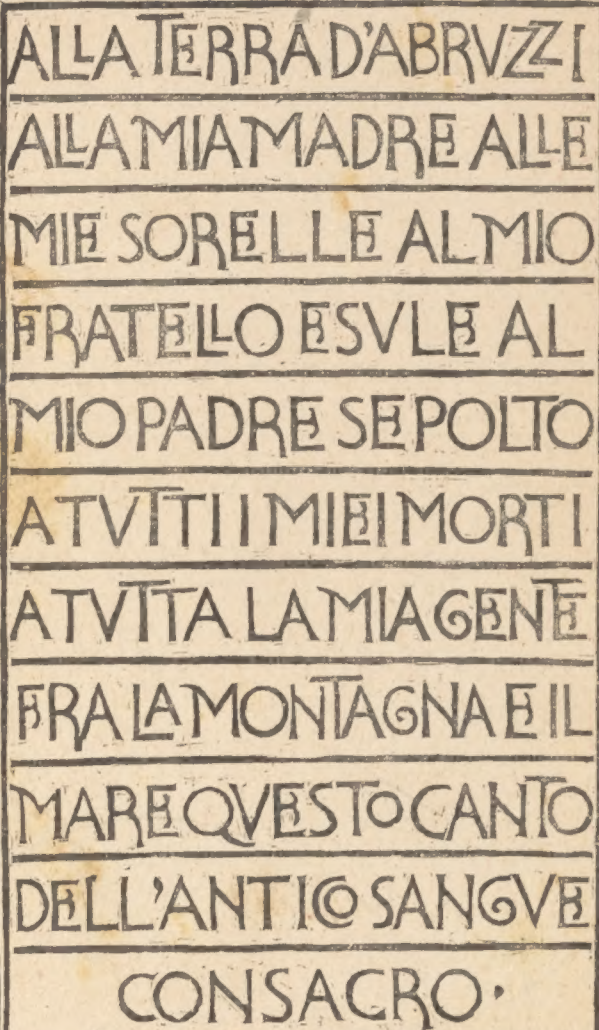 ALLA TERRA D'ABRVZZI
ALLA MIA MADRE ALLE
MIE SORELLE AL MIO
FRATELLO ESVLE AL
MIO PADRE SEPOLTO
A TVTTI I MIEI MORTI
A TVTTA LA MIA GENTE
FRA LA MONTAGNA E IL
MARE QVESTO CANTO
DELL'ANTICO SANGVE
CONSACRO·